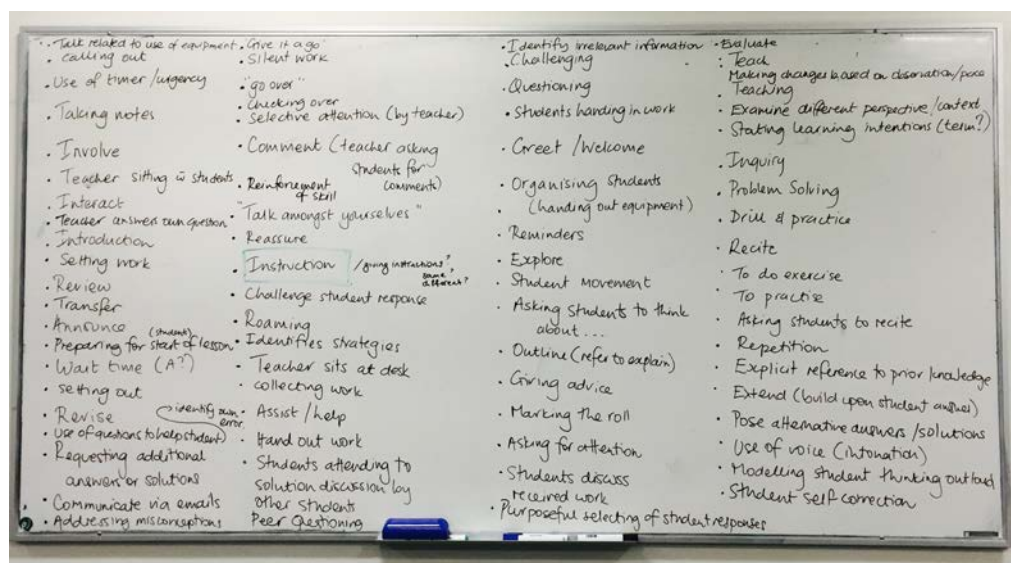 · Talk related to use of equipment
· calling out
· Use of timer /urgency
· Taking notes
· Involve
· Teacher sitting w̄ students
· Interact
· Teacher answers own question
· Introduction
· Setting work
· Review
· Transfer
· Announce
(student)
· Preparing for start of lesson
· Wait time (A?)
· setting out
· Revise
identify own error
· Use of questions to help student)
· Requesting additional
answers or solutions
· Communicate via emails
· Addressing misconceptions
· "Give it a go"
· Silent work
· "go over"
· Checking over
· Selective attention (by teacher)
· Comment (teacher asking
students for
comments)
· Reinforcement
of skill
· "Talk amongst yourselves"
· Reassure
· Instruction /giving instructions?
same,
different?
· Challenge student response
· Roaming
· Identifies strategies
· Teacher sits at desk
· collecting work
· Assist/help
· Hand out work
· Students attending to
solution discussion by
other students
Peer Questioning
· Identify irrelevant information
· Challenging
· Questioning
· Students handing in work
· Greet /Welcome
· Organising students
(handing out equipment)
· Reminders
· Explore
· Student movement
· Asking students to think
about...
· Outline (refer to explain)
· Giving advice
· Marking the roll
· Asking for attention
· Students discuss
received work
· Purposeful selecting of student responses
· Evaluate
· Teach
Making changes based on observation/pace
· Teaching
· Examine different perspective/context
· Stating learning intentions (term?)
· Inquiry
· Problem Solving
· Drill & practice
· Recite
· To do exercise
· To practise
· Asking students to recite
· Repetition
· Explicit reference to prior knowledge
· Extend (build upon student answer)
· Pose alternative answers /solutions
· Use of voice (intonation)
· Modelling student thinking out loud
· Student self correction